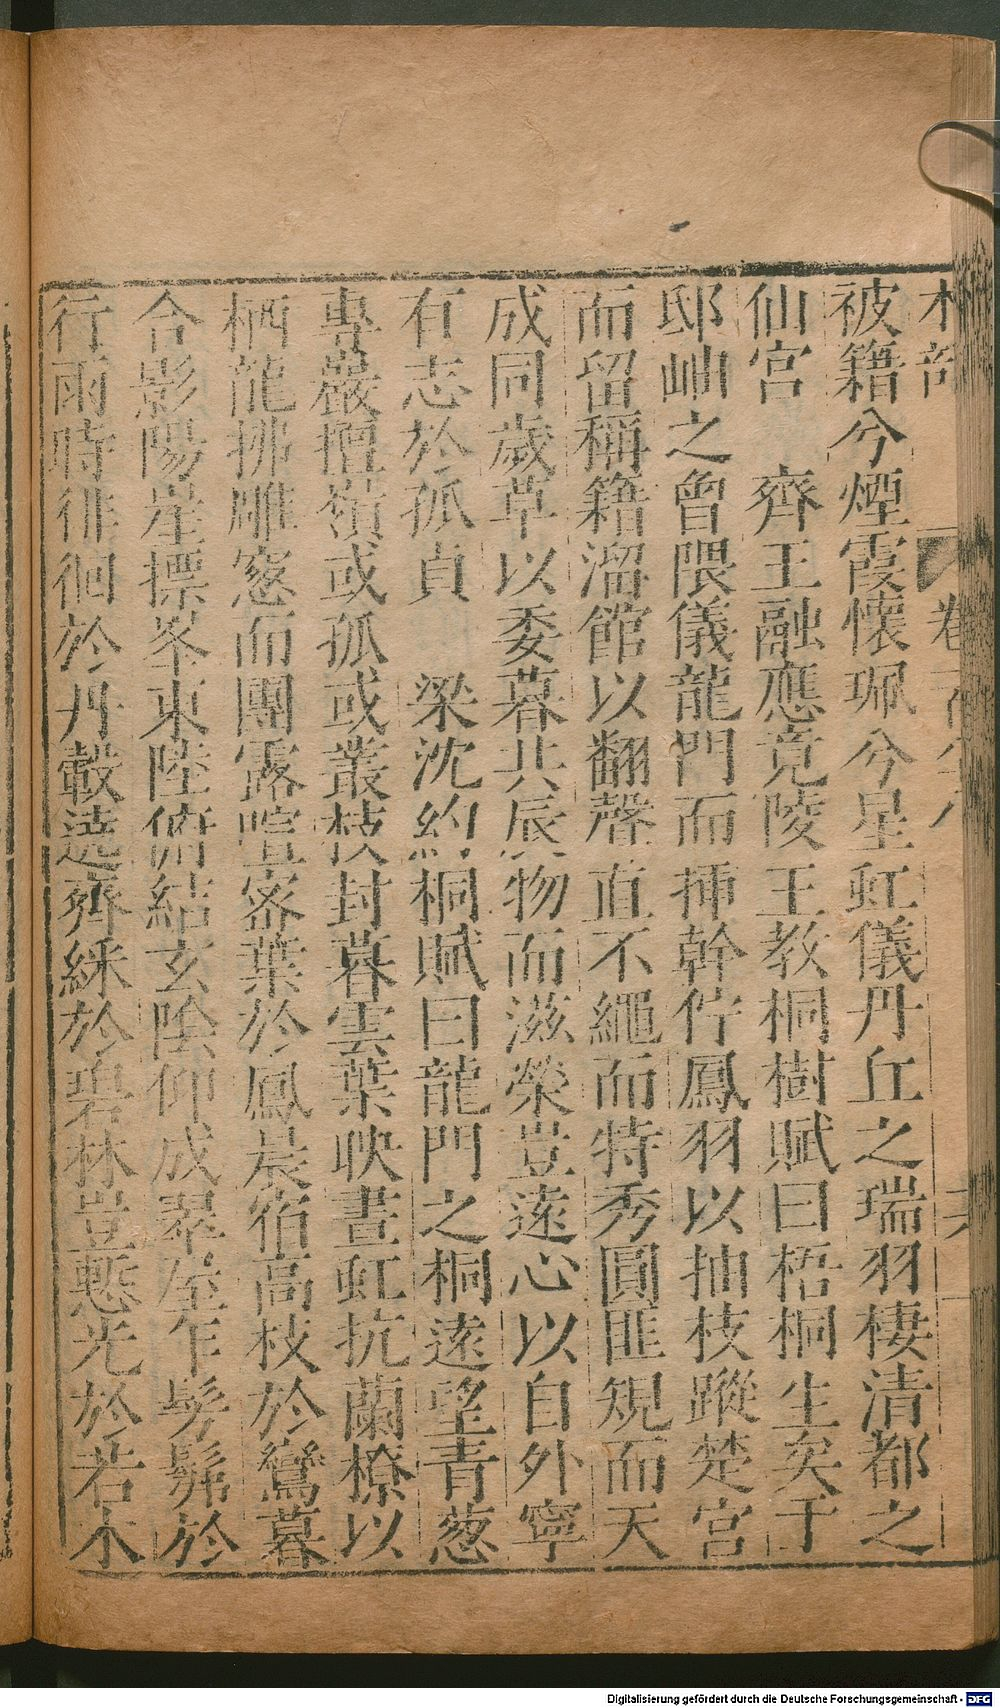 木部
卷
被籍兮煙霞懷珮兮星虹儀丹丘之瑞羽棲清都之
仙宮　齊王融應竟陵王教桐樹賦曰梧桐生矣于
邸岫之曾隈儀龍門而插幹佇鳳羽以抽枝蹤楚宮
而留稱籍溜館以翻聲直不繩而特秀圓匪規而天
成同歲草以委暮共辰物而滋榮豈遠心以自外寧
有志於孤貞　梁沈約桐賦曰龍門之桐遠望青葱
專巖擅嶺或孤或叢枝封暮雲葉映晝虹抗蘭橑以
栖龍拂雕窓而團露喧密葉於鳳晨宿高枝於鸞暮
合影陽崖摽峯東陸俯結玄陰仰成翠屋乍髣髴於
行雨時徘徊於丹轂逶齊綵於碧林豈慙光於若木
Digitalisierung gefördert durch die Deutsche Forschungsgemeinschaft - DFG